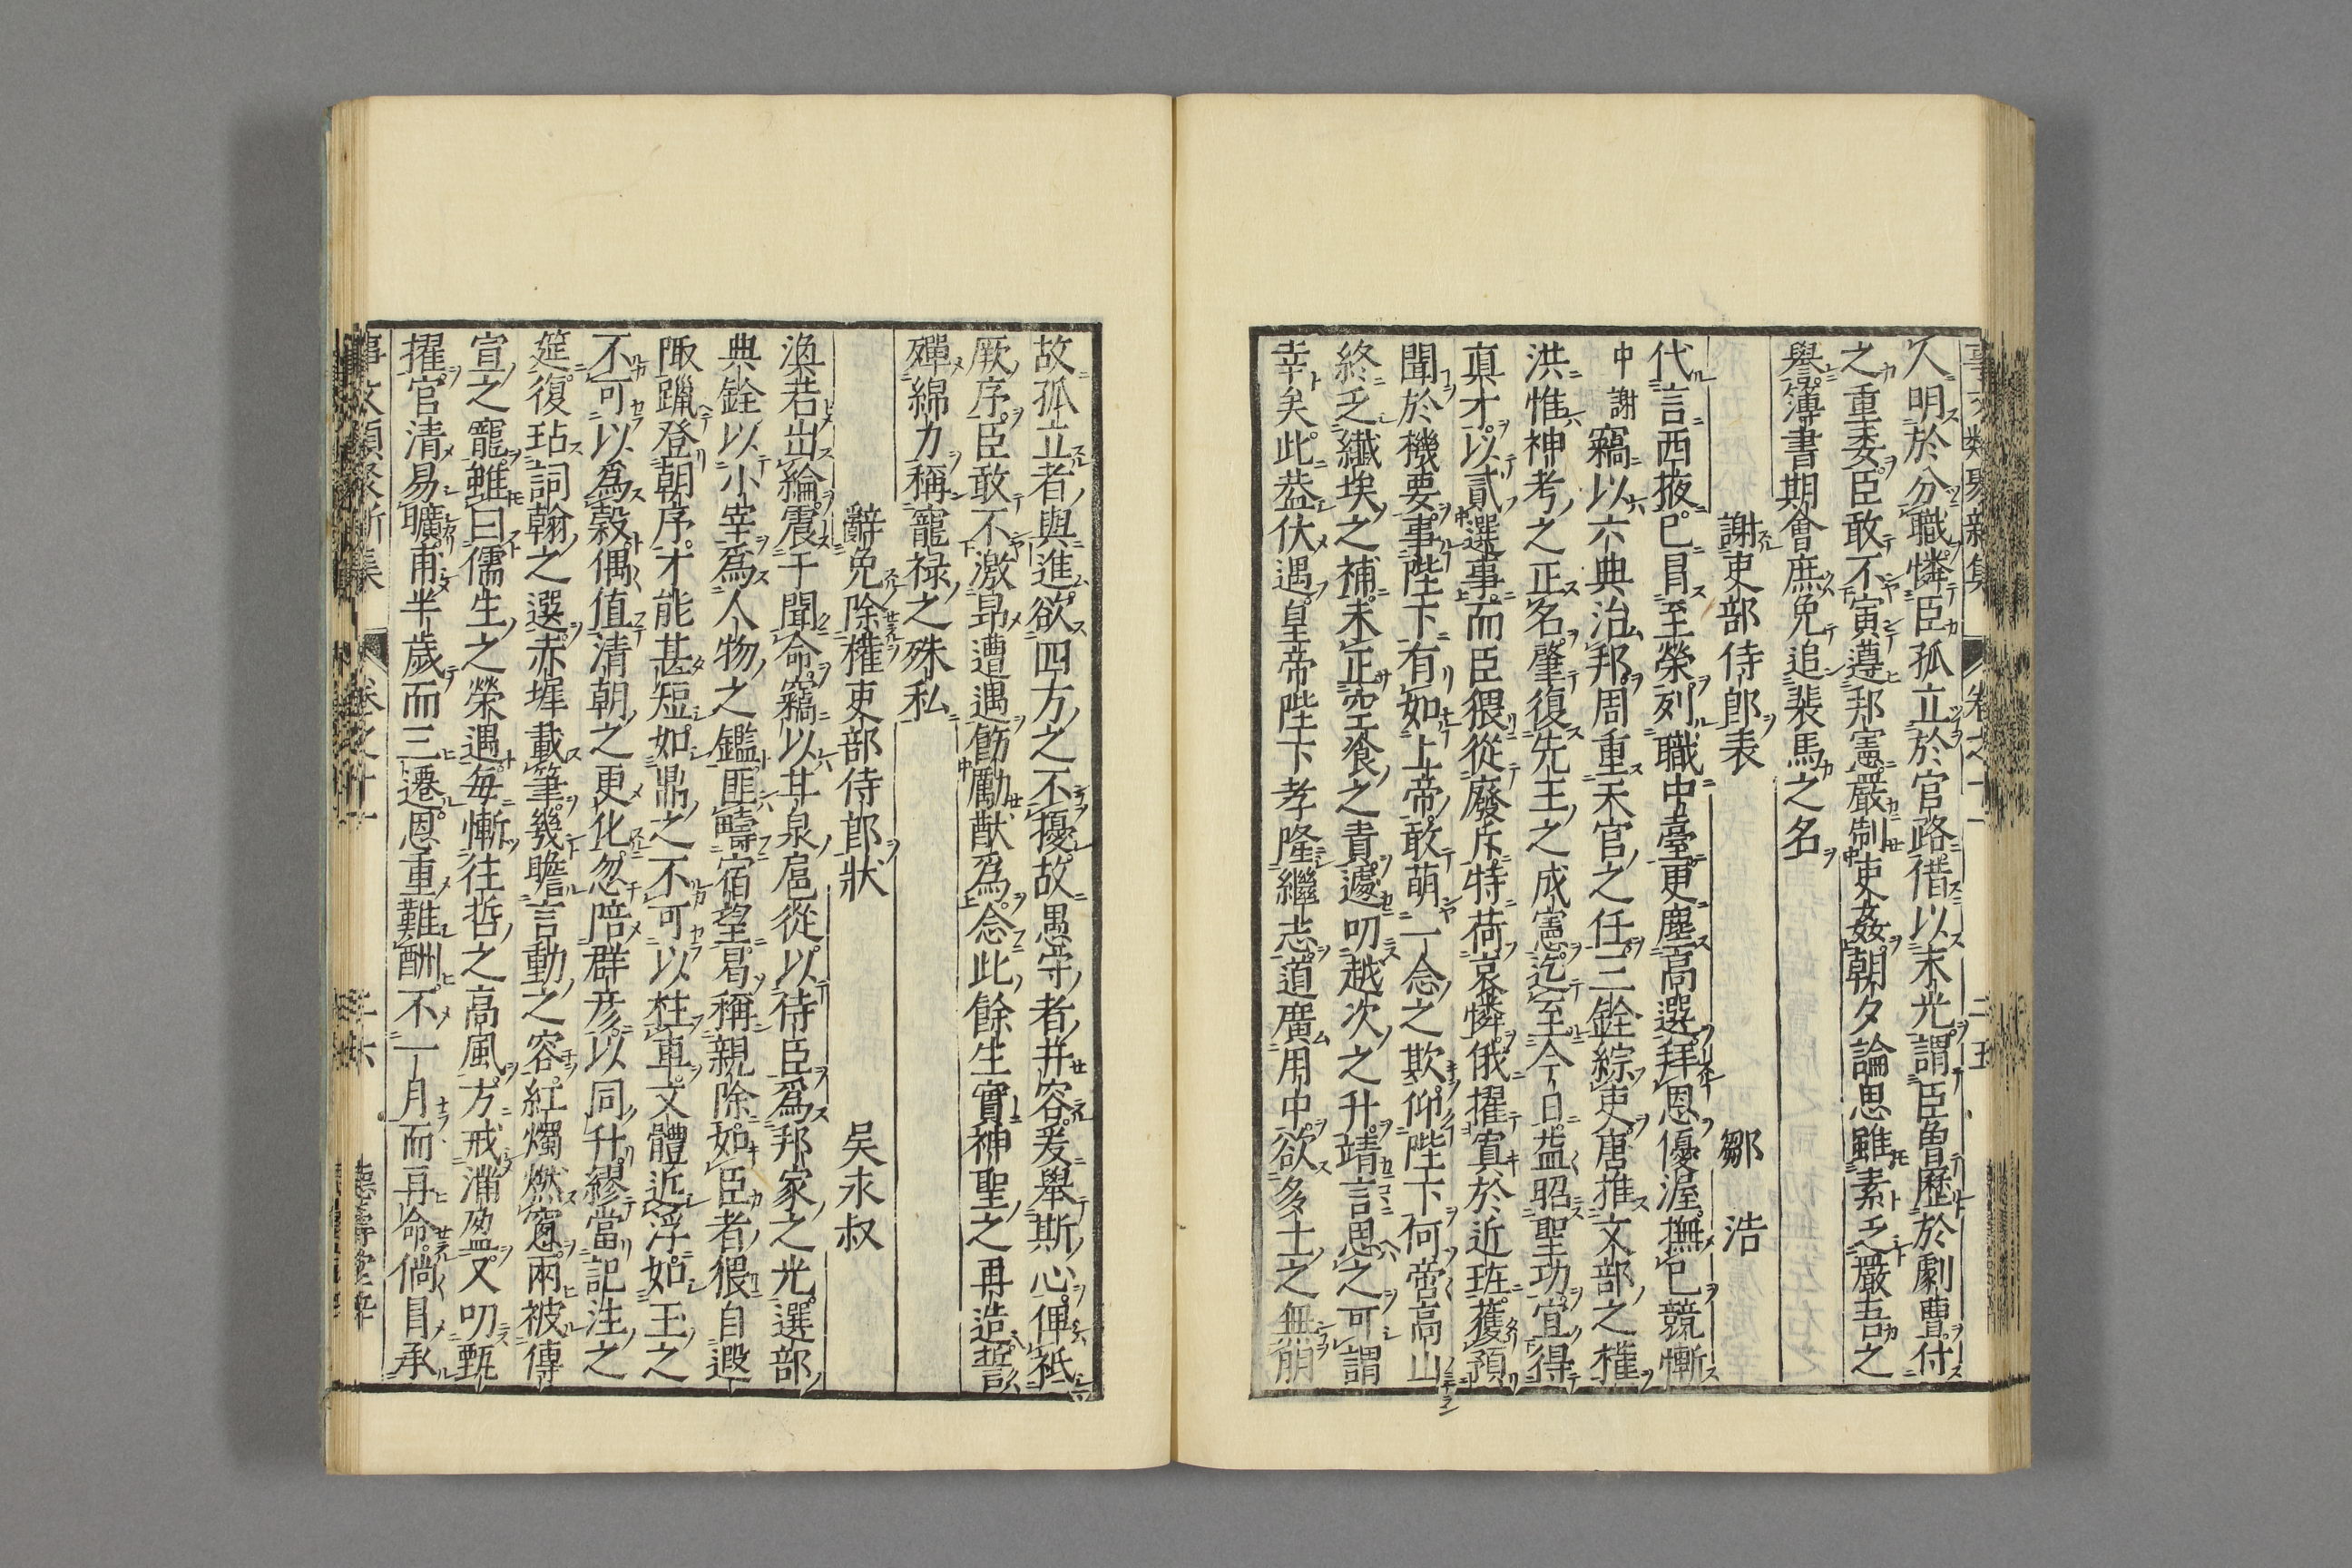 人明於分職憐臣孤立於官路借以末光謂臣魯歷於劇曹付
之重委臣敢不寅遵邦憲嚴制吏姦朝夕論思雖素乏嚴吾之
譽簿書期會庶免追裴馬之名
謝吏部侍郎表 鄒浩
代言西掖已冒至榮列職中臺更塵高選拜恩優渥撫己競慚
中謝竊以六典治邦周重天官之任三銓綜吏唐推文部之權
洪惟神考之正名肇復先王之成憲迄至今日益昭聖功宜得
真才以貳選事而臣猥從廢斥特荷哀憐俄擢寘於近班獲預
聞於機要事陛下有如上帝敢萌一念之欺仰陛下何啻高山
終乏纖埃之補未正空飡之責遽叨越次之升靖言思之可謂
幸矣此葢伏遇皇帝陛下孝隆繼志道廣用中欲多士之無朋
故孤立者與進欲四方之不擾故愚守者并容爰舉斯心俾祗
厥序臣敢不激昻遭遇飭勵猷為念此餘生實神聖之再造誓
殫綿力稱寵禄之殊私
辭免除權吏部侍郎狀 吴永叔
渙若出綸震于聞命竊以甘泉扈從以待臣爲邦家之光選部
典銓以小宰爲人物之鑑匪疇宿望曷稱親除如臣者猥自遐
陬躐登朝序才能甚短如鼎之不可以柱車文體近浮如玉之
不可以為穀偶值清朝之更化忽陪群彦以同升繆當記注之
筵復玷詞翰之選赤墀載筆幾瞻言動之容紅燭燃窻兩被傳
宣之寵雖曰儒生之榮遇每慚往哲之高風方戒滿盈又叨甄
擢官清易曠甫半歲而三遷恩重難酬不一月而再命倘冒承
事文類聚新集 卷之十一 二十六